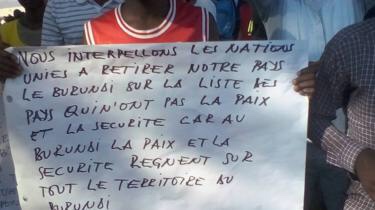 NOUS INTERPELLONS LES NATIONS
UNIES A RETIRER NOTRE PAYS
LE BURUNDI SUR LA LISTE DES
PAYS QUIN'ONT PAS LA PAIX
ET LA SECURITE CAR AU
BURUNDI LA PAIX ET LA
SECURITE REGNENT SUR
TOUT LE TERRITOIRE DU
BURUNDI